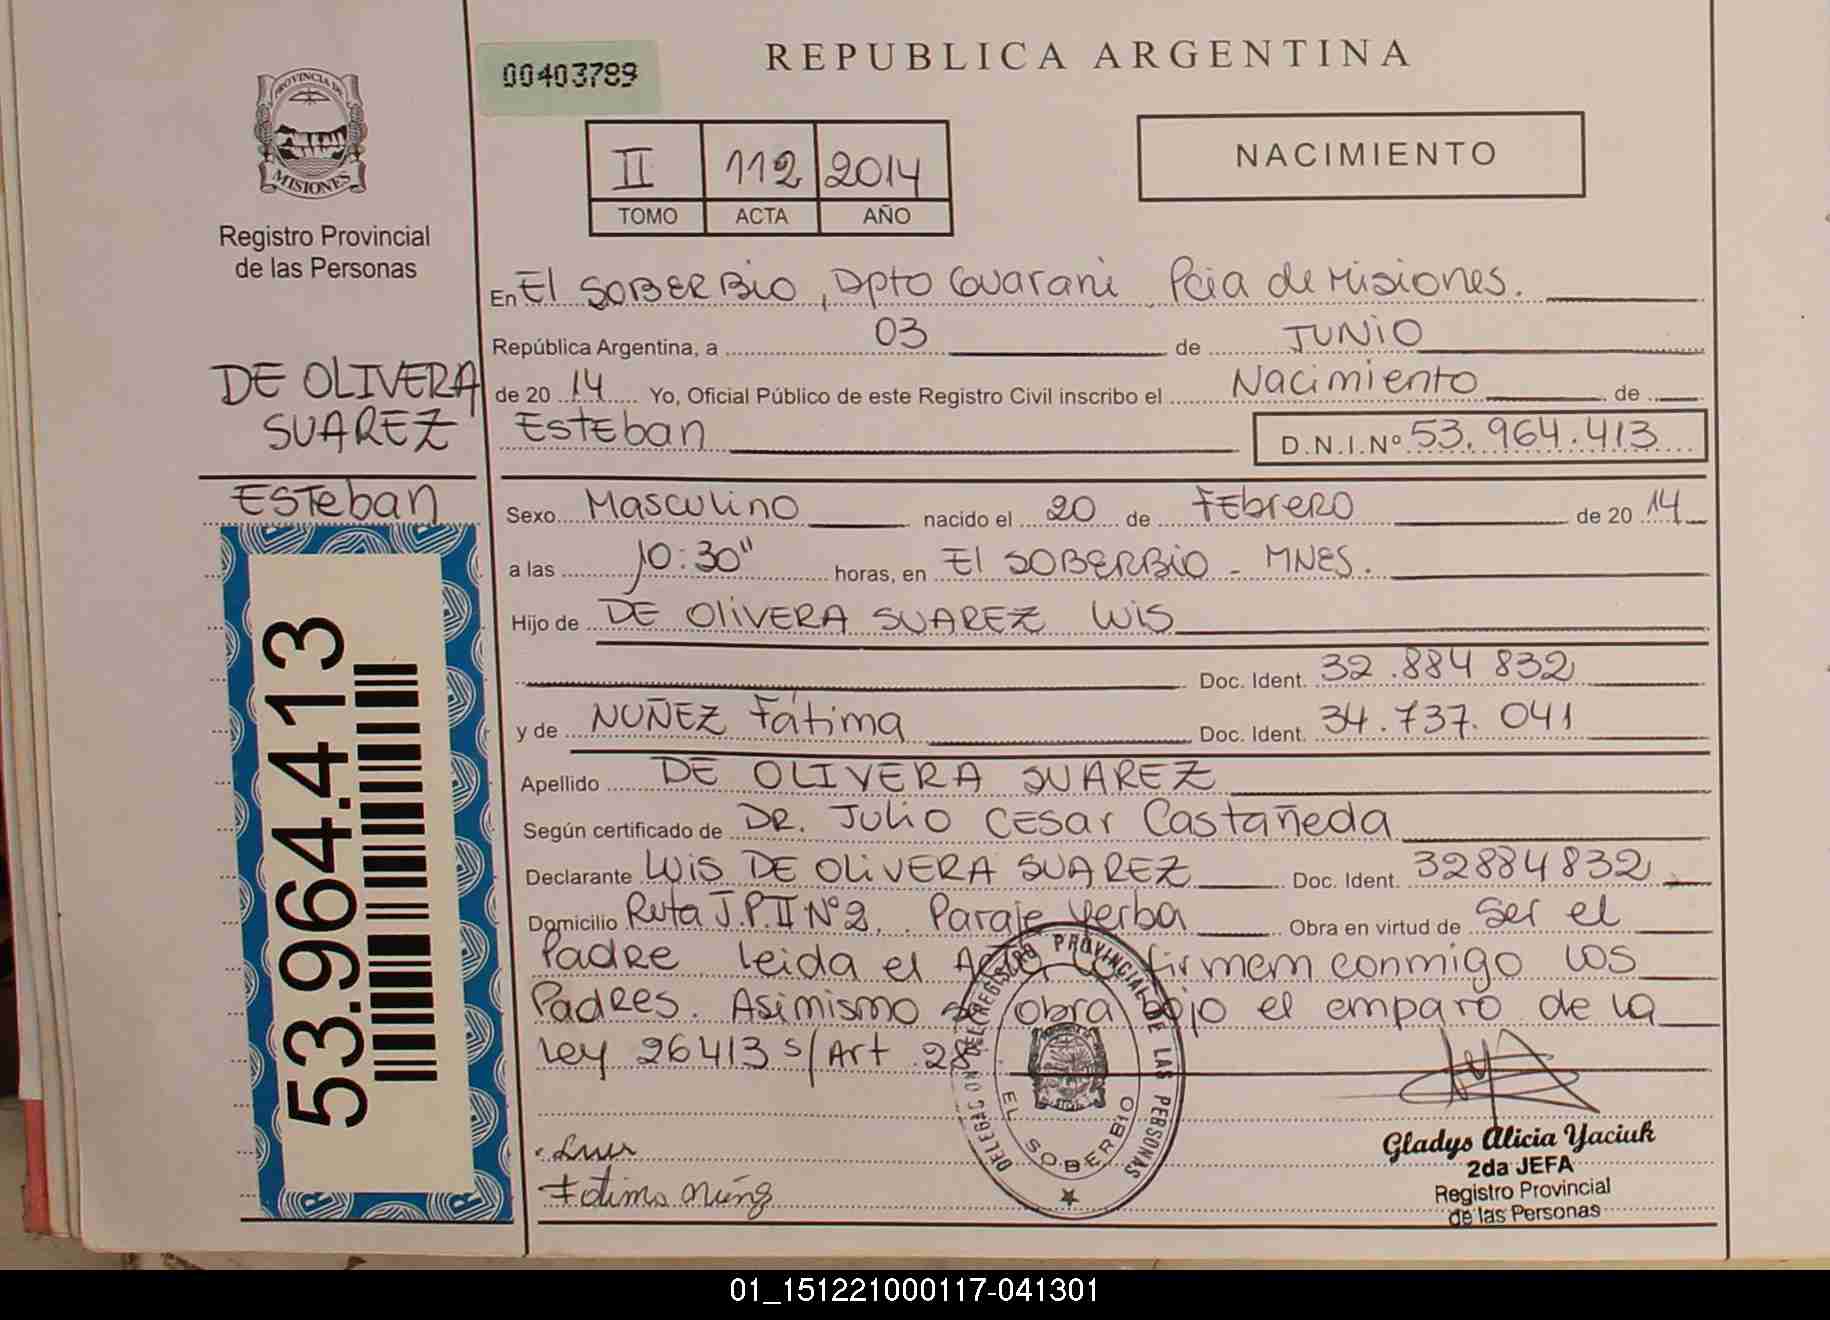 PROVINCIA DE
MISIONES
Registro Provincial
de las Personas
DE OLIVERA
SUAREZ
Esteban
53.964.413
00403789
REPUBLICA ARGENTINA
II 112 2014
TOMO ACTA AÑO
NACIMIENTO
En El SOBERBIO, Dpto Guarani Pcia de Misiones.
República Argentina, a 03 de JUNIO
de 20 14 Yo, Oficial Público de este Registro Civil inscribo el Nacimiento de
Esteban D.N.I.Nº 53.964.413
Sexo Masculino nacido el 20 de Febrero de 20 14
a las 10:30" horas, en El SOBERBIO - MNES.
Hijo de DE OliVERA SUAREZ Luis
Doc. Ident. 32.884 832
y de NUÑEZ Fátima Doc. Ident. 34.737.041
Apellido DE OLIVERA SUAREZ
Según certificado de DR. Julio CESar Castañeda
Declarante Luis DE OliVERA SUAREZ Doc. Ident. 32884832
Domicilio Ruta J.P.II Nº2. Paraje Yerba Obra en virtud de Ser el
Padre leida el Acta la firmem conmigo los
Padres. Asimismo se obra bajo el emparo de la
Ley 26413 s/Art 28
DELEGACION DE REGISTRO PROVINCIAL DE LAS PERSONAS
EL SOBERBIO
Luis
Fatima Núñez
Gladys Alicia Yaciuk
2da JEFA
Registro Provincial
de las Personas
01_151221000117-041301